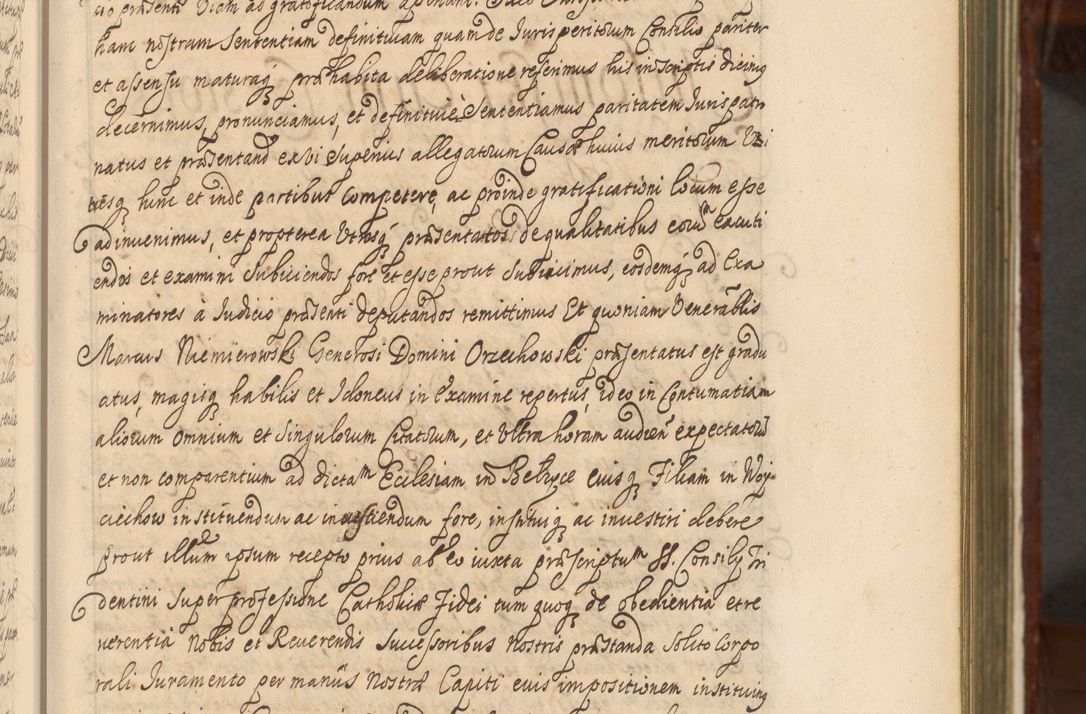 hanc nostram Sententiam definitivam quam de Jurisperitorum Consilio pariter
et assensu maturaq præhabita deliberatione referimus his in scriptis dicimus
decernimus, pronunciamus, et definitivè Sententiamus paritatem Juris patro
natus et præsentand ex vi Superius allegatorum Causæ huius meritorum Utri
usq hinc et inde partibus competere, ac proinde gratificationi locum esse
adinvenimus, et propterea Utrosq præsentatos de qualitatibus eorum excuti
endos et examini Subiiciendos fore et esse prout Subiicimus, eosdemq ad Exa
minatores à Judicio præsenti deputandos remittimus Et quoniam Venerabilis
Marcus Niemierowski Generosi Domini Orzechowski præsentatus est gradu
atus, magisq habilis et Idoneus in Examine repertus, ideo in Contumatiam
aliorum omnium et Singulorum Citatorum, et Ultra horam audien expectatorum
et non comparentium ad dictam Ecclesiam in Belzyce eiusq Filiam in Woy-
ciechow instituendum ac investiendum fore, instituiq ac investiri debere
prout illum ipsum recepto prius ab eo iuxta præscriptum SS. Consilij Tri
dentini Super professione Catholicæ Fidei tum quoq de obedientia et re
verentia Nobis et Reverendis Successoribus Nostris præstanda Solito corpo
rali Juramento per manus Nostræ Capiti eius impositionem instituimus